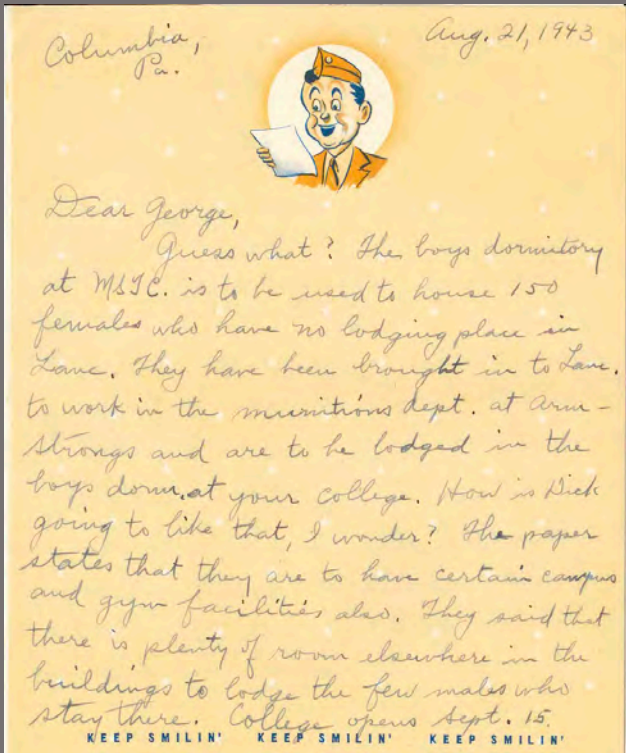 Columbia,
Pa.
Aug. 21, 1943
Dear George,
Guess what? The boys dormitory
at MSTC. is to be used to house 150
females who have no lodging place in
Lanc. They have been brought in to Lanc.
to work in the munitions dept. at Arm-
strongs and are to be lodged in the
boys dorm. at your college. How is Dick
going to like that, I wonder? The paper
states that they are to have certain campus
and gym facilities also. They said that
there is plenty of room elsewhere in the
buildings to lodge the few males who
stay there. College opens Sept. 15.
KEEP SMILIN' KEEP SMILIN' KEEP SMILIN'